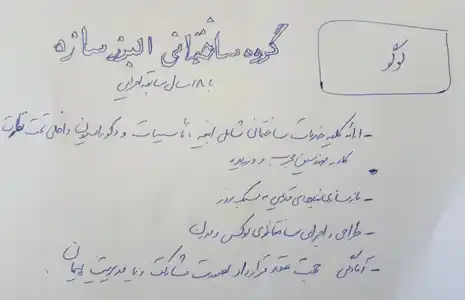 گروه ساختمانی البرز سازه
لوگو
با ۱۸ سال سابقه اجرایی
- ارائه کلیه خدمات ساختمانی شامل ابنیه، تاسیسات و دکوراسیون داخلی تحت نظارت
کادر مهندسین مجرب و ورزیده
- بازسازی بناهای قدیمی به سبک روز
- طراحی و اجرای ساختمانهای لوکس و مدرن
- آمادگی جهت عقد قرارداد بصورت مشارکت و یا مدیریت پیمان.